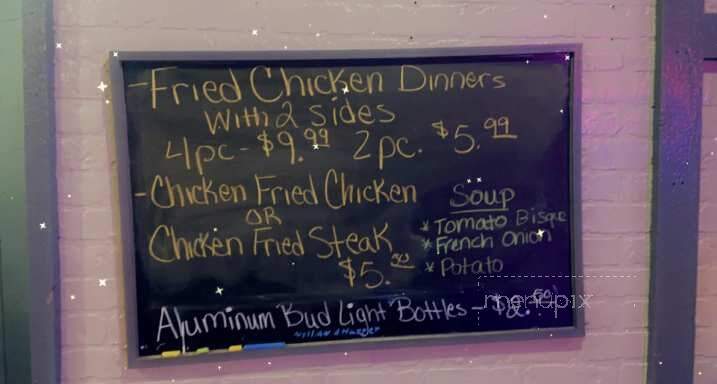 -Fried Chicken Dinners
With 2 sides
4pc- $9.99 2pc. $5.99
-Chicken Fried Chicken
OR
Chicken Fried Steak
$5.00
Soup
* Tomato Bisque
* French Onion
* Potato
Aluminum Bud Light Bottles - $2.50!
menupix